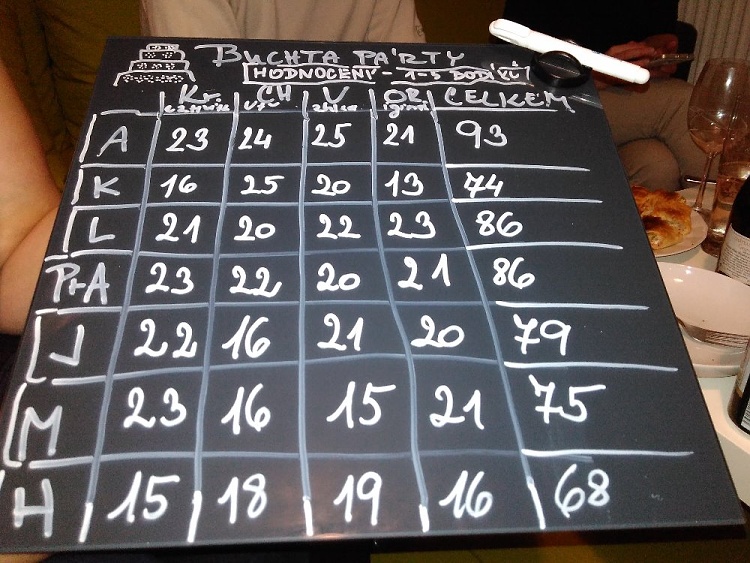 BUCHTA PÁRTY
HODNOCENÍ - 1-5 BODÍKŮ
Kr. CH V OB CELKEM
A 23 24 25 21 93
K 16 25 20 13 74
L 21 20 22 23 86
PrA 23 22 20 21 86
J 22 16 21 20 79
M 23 16 15 21 75
H 15 18 19 16 68